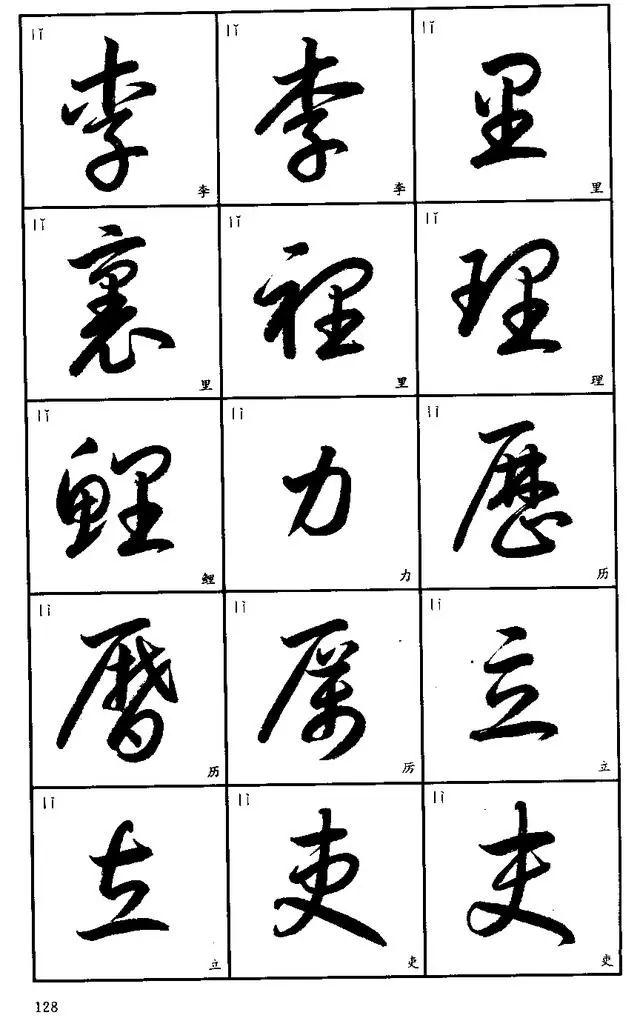 lǐ lǐ lǐ
李 李 里
李 李 里
lǐ lǐ lǐ
裏 裡 理
里 里 理
lǐ lì lì
鯉 力 歷
鲤 力 历
lì lì lì
曆 厲 立
历 厉 立
lì lì lì
立 吏 吏
立 吏 吏
128